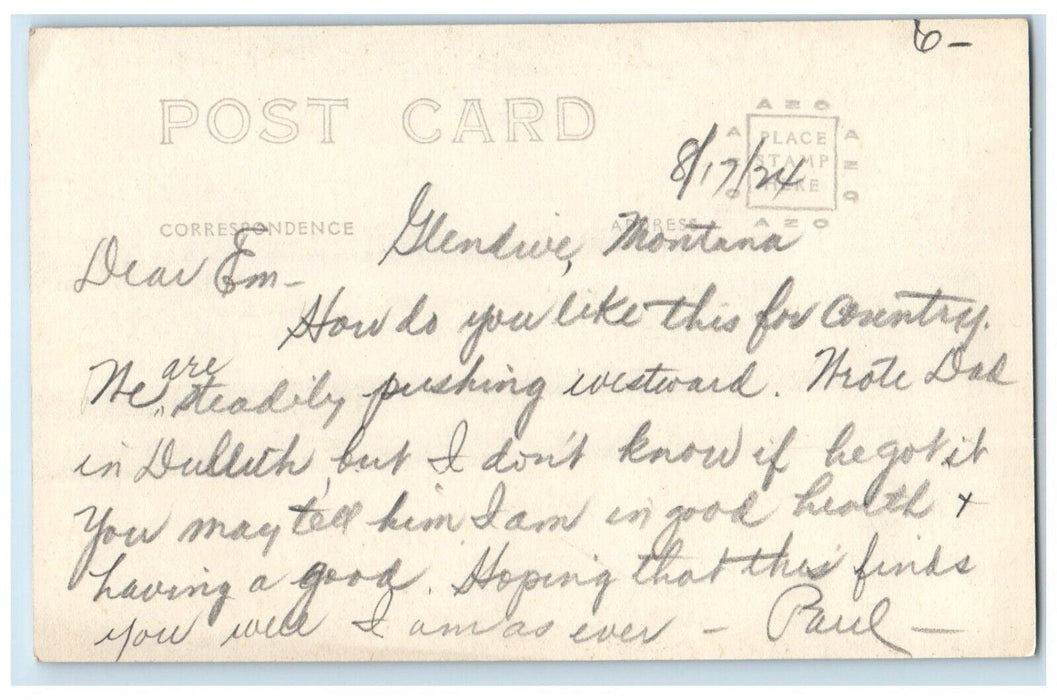 6-
POST CARD
AZO
A PLACE A
STAMP Z
O HERE O
AZO
8/17/24
CORRESPONDENCE
ADDRESS
Glendive, Montana
Dear Em-
How do you like this for country.
We are steadily pushing westward. Wrote Dad
in Dulluth, but I don't know if he got it
You may tell him I am in good health +
having a good. Hoping that this finds
you well I am as ever - Paul -